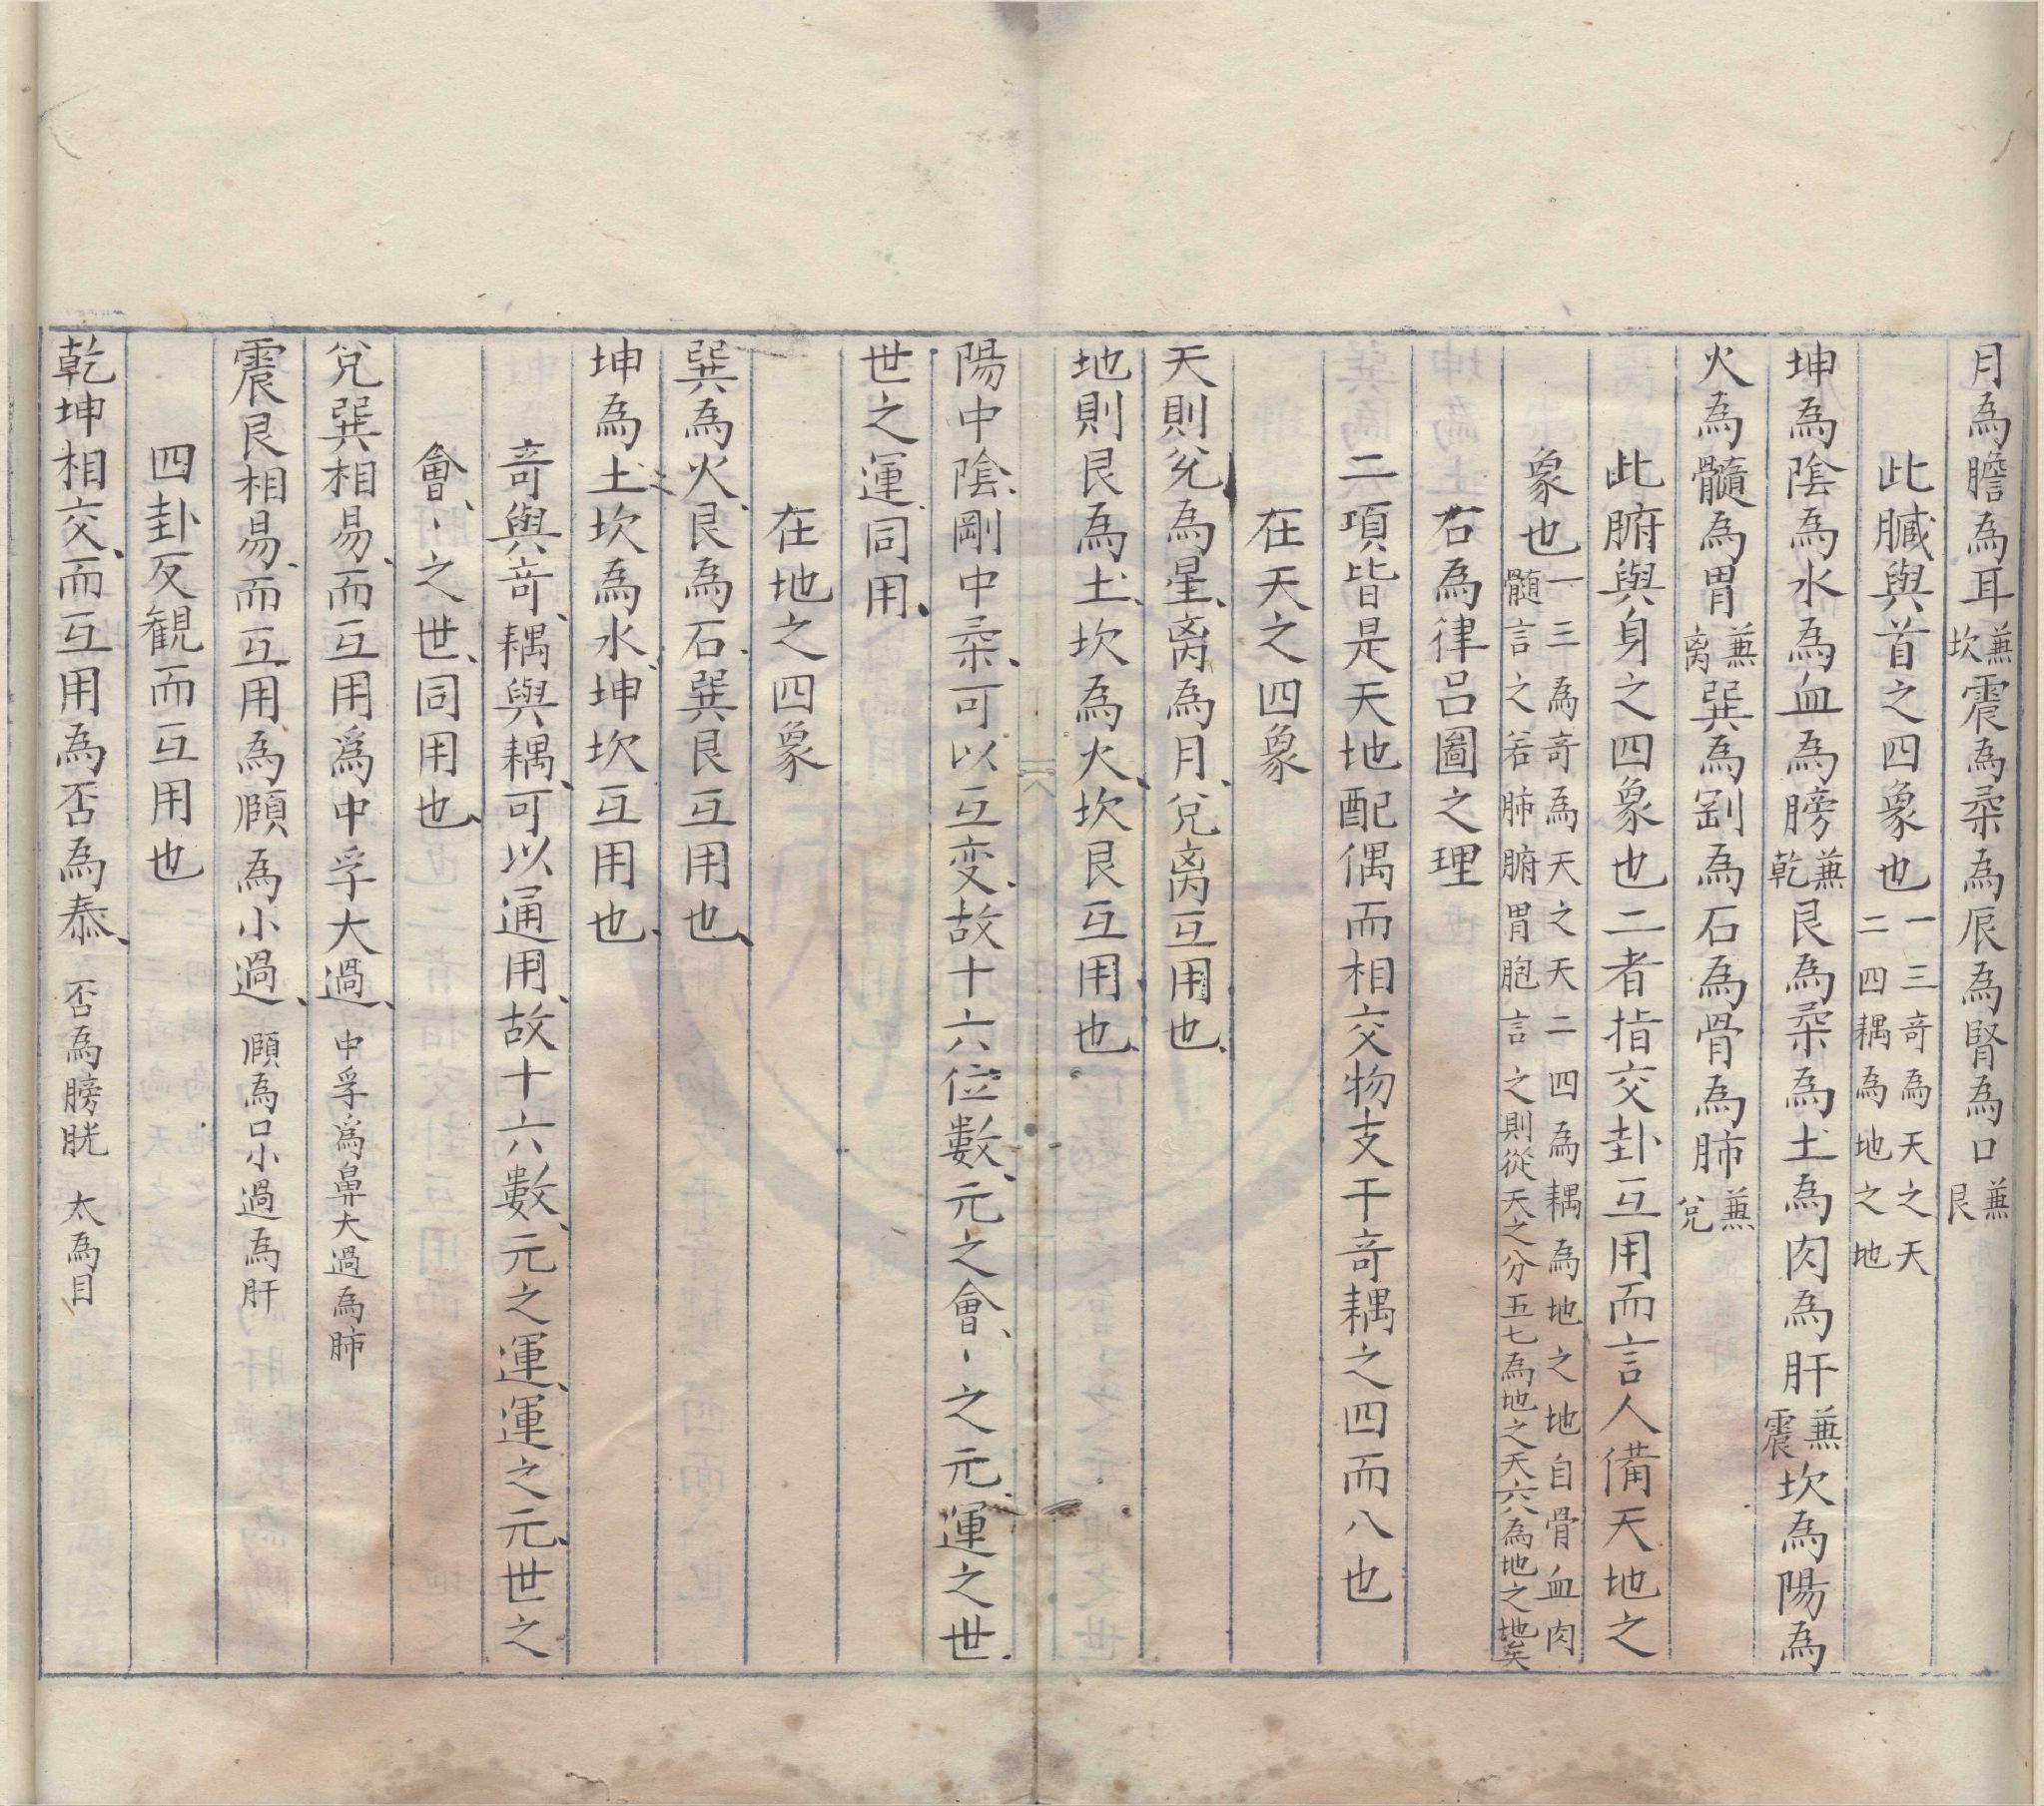 月為膽為耳兼坎震為柔為辰為腎為口兼艮
此臟與首之四象也一三奇為天之天二四耦為地之地
坤為陰為水為血為膀兼乾艮為柔為土為肉為肝兼震坎為陽為
火為髓為胃兼离巽為剛為石為骨為肺兼兌
此腑與身之四象也二者指交卦互用而言人備天地之
象也一三為奇為天之天二四為耦為地之地自骨血肉髓言之若肺腑胃胞言之則從天之分五七為地之天六為地之地矣
右為律呂圖之理
二項皆是天地配偶而相交物支干奇耦之四而八也
在天之四象
天則兌為星、离為月、兌离互用也、
地則艮為土、坎為火、坎艮互用也、
陽中陰、剛中柔、可以互变、故十六位數、元之會、、之元、運之世、
世之運、同用、
在地之四象
巽為火、艮為石、巽艮互用也、
坤為土、坎為水、坤坎互用也、
奇與奇、耦與耦、可以通用、故十六數、元之運、運之元、世之
會、、之世、同用也、
兌巽相易、而互用為中孚大過、 中孚為鼻大過為肺
震艮相易、而互用、為頤為小過、 頤為口小過為肝
四卦反観而互用也
乾坤相交、而互用為否為泰、 否為膀胱 太為目